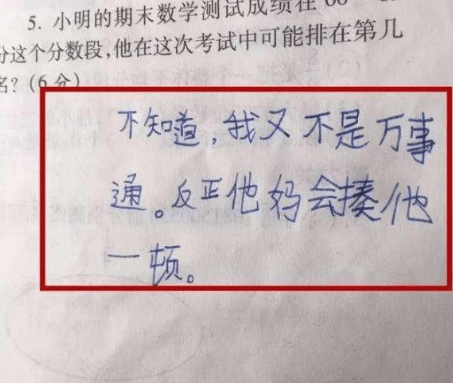 5. 小明的期末数学测试成绩在
分这个分数段,他在这次考试中可能排在第几
名?(6分)
不知道,我又不是万事
通。反正他妈会揍他
一顿。